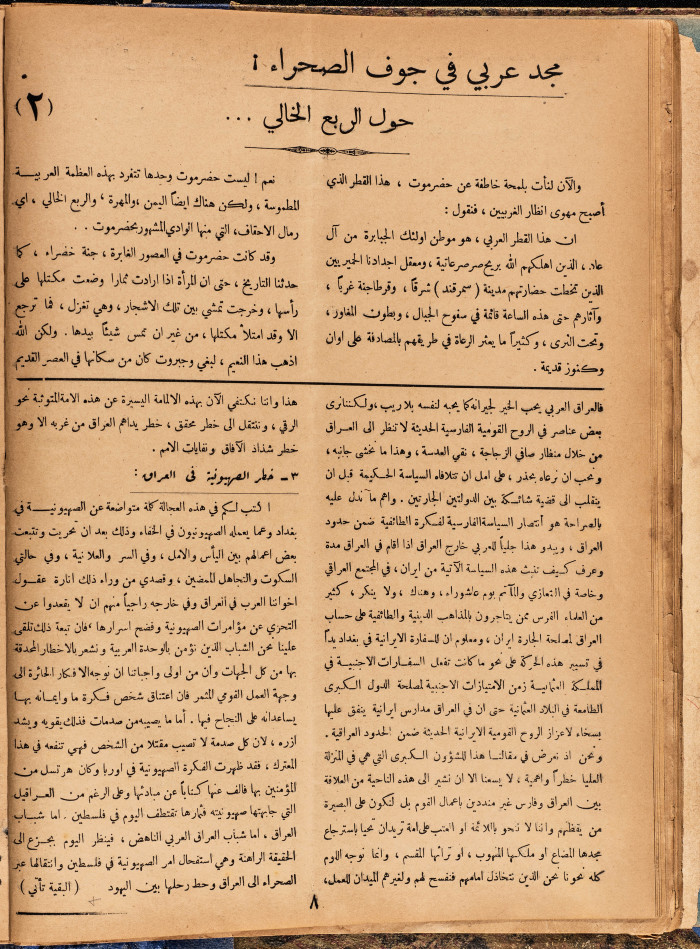 مجد عربي في جوف الصحراء !
(٢)
حول الربع الخالي ...
والآن لنأت بلمحة خاطفة عن حضرموت ، هذا القطر الذي
أصبح مهوى انظار الغربيين ، فنقول :
ان هذا القطر العربي ، هو موطن اولئك الجبابرة من آل
عاد ، الذين اهلكهم الله بريح صرصر عاتية ، ومعقل اجدادنا الحميريين
الذين تخطت حضارتهم مدينة ( سمرقند ) شرقاً ، وقرطاجنة غرباً ،
وآثارهم حتى هذه الساعة قائمة في سفوح الجبال ، وبطون المغاور ،
وتحت الثرى ، وكثيراً ما يعثر الرعاة في طريقهم بالمصادفة على اوان
وكنوز قديمة .
نعم ! ليست حضرموت وحدها تنفرد بهذه العظمة العربية
المطموسة ، ولكن هناك ايضاً اليمن ، والمهرة ، والربع الخالي ، اي
رمال الاحقاف ، التي منها الوادي المشهور بحضرموت . .
وقد كانت حضرموت في العصور الغابرة ، جنة خضراء ، كما
حدثنا التاريخ ، حتى ان المرأة اذا ارادت ثمارا وضعت مكتلها على
رأسها ، وخرجت تمشي بين تلك الاشجار ، وهي تغزل ، فما ترجع
الا وقد امتلأ مكتلها ، من غير ان تمس شيئاً بيدها . ولكن الله
اذهب هذا النعيم ، لبغي وجبروت كان من سكانها في العصر القديم
فالعراق العربي يحب الخير لجيرانه كما يحبه لنفسه بلا ريب ، ولكننا نرى
بعض عناصر في الروح القومية الفارسية الحديثة لا تنظر الى العراق
من خلال منظار صافي الزجاجة ، نقي العدسة ، وهذا ما نخشى جانبه ،
ونحب ان نرعاه بحذر ، على امل ان تتلافاه السياسة الحكيمة قبل ان
ينقلب الى قضية شائكة بين الدولتين الجارتين . واهم ما ندل عليه
بالصراحة هو أنتصار السياسة الفارسية لفكرة الطائفية ضمن حدود
العراق ، ويبدو هذا جلياً للعربي خارج العراق اذا اقام في العراق مدة
وعرف كيف تنبث هذه السياسة الآتية من ايران ، في المجتمع العراقي
وخاصة في التعازي والمآتم يوم عاشوراء ، وهناك ، ولا ينكر ، كثير
من العلماء الفرس ممن يتاجرون بالمذاهب الدينية والطائفية على حساب
العراق لمصلحة الجارة ايران ، ومعلوم ان للسفارة الايرانية في بغداد يداً
في تسيير هذه الحركة على نحو ما كانت تفعل السفارات الاجنبية في
المملكة العثمانية زمن الامتيازات الاجنبية لمصلحة الدول الكبرى
الطامعة في البلاد العثمانية حتى ان في العراق مدارس ايرانية ينفق عليها
بسخاء لاعزاز الروح القومية الايرانية الحديثة ضمن الحدود العراقية .
ونحن اذ نعرض في مقالنا هذا للشؤون الكبرى التي هي في المنزلة
العليا خطراً واهمية ، لا يسعنا الا ان نشير الى هذه الناحية من العلاقة
بين العراق وفارس غير منددين باعمال القوم بل لنكون على البصيرة
من يقظهم واننا لا ننحو باللائمة او العتب على امة تريد ان تحيا باسترجاع
مجدها المضاع او ملكها المنهوب ، او تراثها المقسم ، وانما نوجه اللوم
كله نحونا نحن الذين نتخاذل امامهم فنفسح لهم ولغيرهم الميدان للعمل ،
هذا واننا نكتفي الآن بهذه الالمامة اليسيرة عن هذه الامة المتوثبة نحو
الرقي ، وننتقل الى خطر محقق ، خطر يداهم العراق من غربه الا وهو
خطر شذاذ الآفاق ونفايات الامم .
٣ – خطر الصهيونية في العراق :
اكتب لكم في هذه العجالة كلمة متواضعة عن الصهيونية في
بغداد وعما يعمله الصهيونيون في الخفاء وذلك بعد ان تحريت وتتبعت
بعض اعمالهم بين اليأس والامل ، وفي السر والعلانية ، وفي حالتي
السكوت والتجاهل الممضين ، وقصدي من وراء ذلك انارة عقول
اخواننا العرب في العراق وفي خارجه راجياً منهم ان لا يقعدوا عن
التحري عن مؤامرات الصهيونية وفضح اسرارها ، فان تبعة ذلك تلقى
علينا نحن الشباب الذين نؤمن بالوحدة العربية ونشعر بالاخطار المحدقة
بها من كل الجهات وان من اولى واجباتنا ان نوجه الافكار الحائرة الى
وجهة العمل القومي المثمر فان اعتناق شخص فكرة ما وايمانه بها
يساعدانه على النجاح فيها . أما ما يصيبه من صدمات فذلك يقويه ويشد
ازره ، لان كل صدمة لا تصيب مقتلا من الشخص فهي تنفعه في هذا
المعترك ، فقد ظهرت الفكرة الصهيونية في اوربا وكان هرتسل من
المؤمنين بها فالف عنها كتاباً عن مبادئها وعلى الرغم من العراقيل
التي جابهتها صهيونيته فثمارها تقتطف اليوم في فلسطين . اما شباب
العراق ، اما شباب العراق العربي الناهض ، فينظر اليوم بجزع الى
الحقيقة الراهنة وهي استفحال امر الصهيونية في فلسطين وانتقالها عبر
الصحراء الى العراق وحط رحلها بين اليهود ( البقية تأتي )
٨